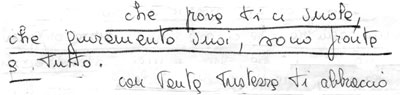 che prove ti ci vuole,
che giuramento vuoi, sono pronta
a tutto.
con tanta tristezza ti abbraccio